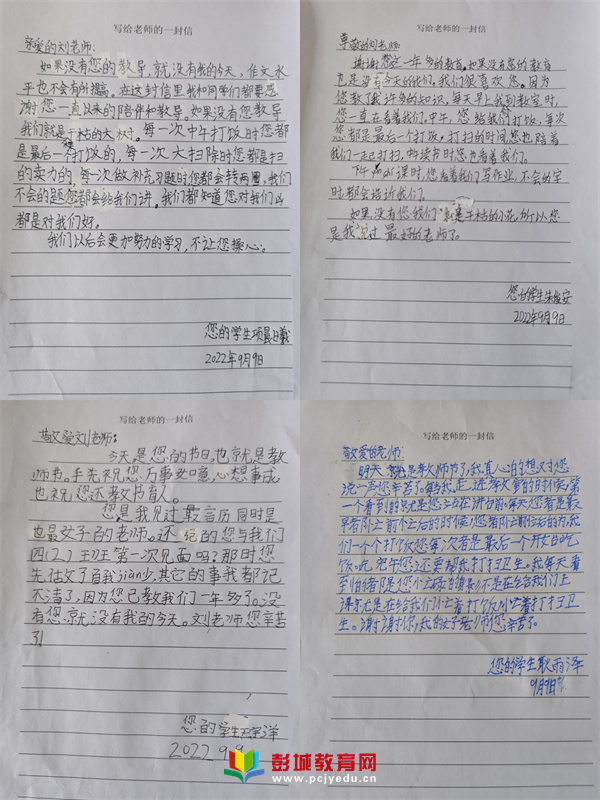 写给老师的一封信
亲爱的刘老师:
如果没有您的教导,就没有我的今天,作文水
平也不会有所提高。在这封信里我和同学们都要感
谢您一直以来的陪伴和教导。如果没有您教导
我们就是干枯的大树。每一次中午打饭时您都
是最后一个打饭的,每一次大扫除时您都是扫
的卖力的,每一次做补充习题时您都会转两圈,我们
不会的题您都会给我们讲。我们都知道您对我们
都是对我们好。
我们以后会更加努力的学习,不让您操心。
您的学生项晨曦
2022年9月9日
写给老师的一封信
尊敬的刘老师:
谢谢您这一年多的教育。如果没有您的教育
也是没有今天的我们。我们很喜欢您。因为
您教了我许多的知识,每天早上我到教室时,
您一直在看着我们。中午,您给我们打饭,每次
您都是最后一个打饭。打扫的时间您也陪着
我们一起打扫,午读书时您也看着我们。
下午 课时,您看着我们写作业,不会的字
时都会告诉我们。
如果没有您我们就是干枯的小花,所以您
是我见过最好的老师了。
您的学生朱 安
2022年9月9日
写给老师的一封信
敬爱刘老师:
今天是您的节日,也就是教
师节。手先祝您万事如意,心想事成
也祝您还教书育人。
您是我见过最言历同时是
也最女子的老师。还 给的您与我们
四(2)班第一次见面吗?那时您
先在女了自我jian少,其它的事我都记
不清了,因为您已教我们一年多了。没
有您就没有我的今天。刘老师您辛苦
了
您的学生王宇洋
2022 9 9
写给老师的一封信
敬爱的老师:
明天就是教师节了,我真心的想对您
说一声您辛苦了。每当我走进教室的时候,第
一个看到的就是您站在讲台前。每天您都是最
早
我们一个个打饭您每次都是最后一个开始吃
饭,吃完午您还要帮我打扫卫生。我每天看
到
课就是在给我们忙着打饭忙着打扫卫
生。谢谢你,我的好老师您辛苦了。
您的学生耿雨泽
9月9日
彭城教育网
www.pcjyedu.cn